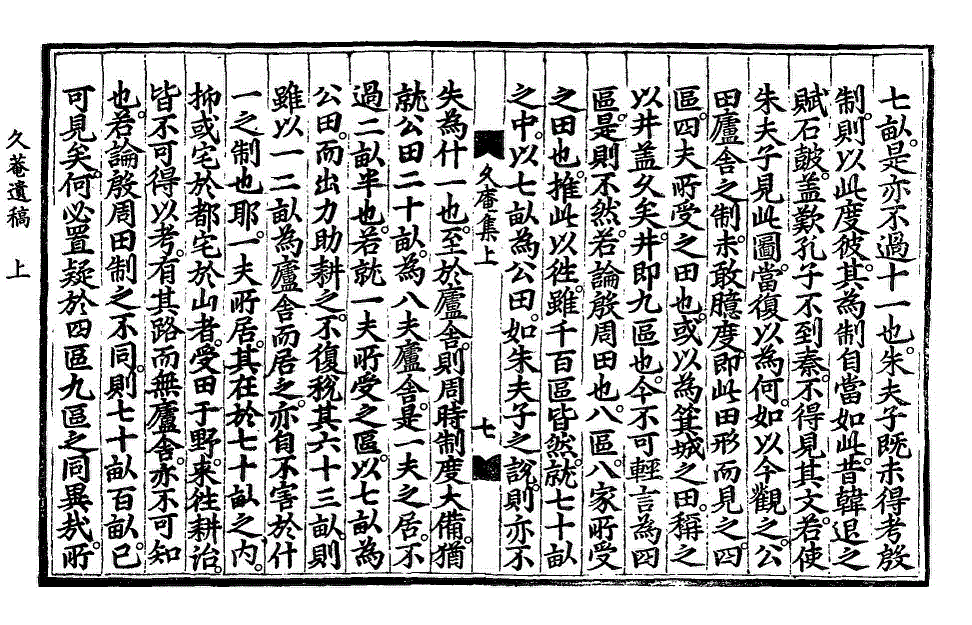 七畝。是亦不過十一也。朱夫子既未得考殷
制。則以此度彼。其爲制自當如此。昔韓退之
賦石皷。盖歎孔子不到秦。不得見其文。若使
朱夫子見此圖。當復以爲何。如以今觀之。公
田廬舍之制。未敢臆度。即此田形而見之。四
區。四夫所受之田也。或以爲箕城之田。稱之
以井盖久矣。井即九區也。今不可輕言爲四
區。是則不然。若論殷周田也。八區。八家所受
之田也。推此以徃。雖千百區皆然。就七十畝
之中。以七畝爲公田。如朱夫子之說。則亦不
久庵集上
七
失爲什一也。至於廬舍。則周時制度大備。猶
就公田二十畝。爲八夫廬舍。是一夫之居。不
過二畝半也。若就一夫所受之區。以七畝爲
公田。而出力助耕之。不復稅其六十三畝。則
雖以一二畝爲廬舍而居之。亦自不害於什
一之制也耶。一夫所居。其在於七十畝之內。
抑或宅於都宅於山者。受田于野。来徃耕治。
皆不可得以考。有其路而無廬舍。亦不可知
也。若論殷周田制之不同。則七十畝百畝。已
可見矣。何必置疑於四區九區之同異㢤。所
久菴遺稿 上